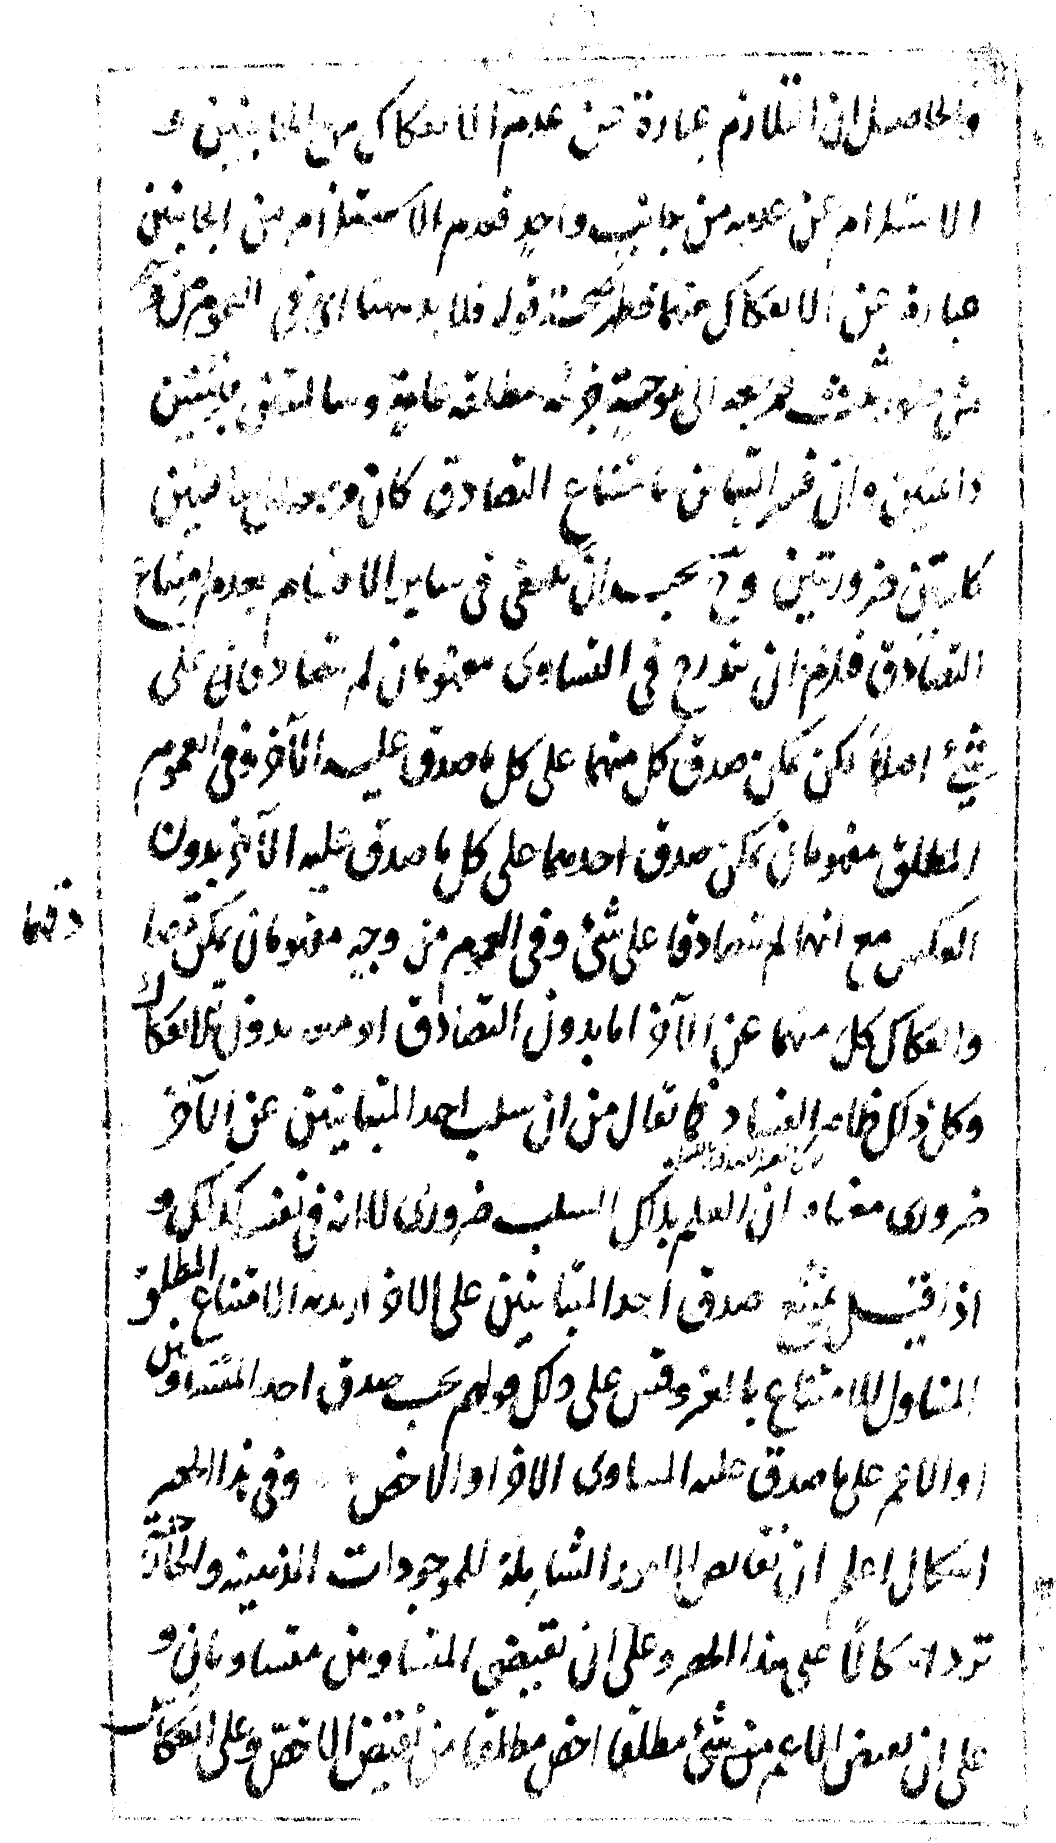 والحاصل ان التلازم عبارة عن عدم الانفكاك من الجانبين و
الاستلزام عن عدمه من جانب واحد فعدم الاستلزام من الجانبين
عبارة عن الانفكاك منهما فظهر صحة قوله فلا بد هنا اى فى العموم من وجه
من فمرجعه الى موجبة جزئية مطلقة عامة وسالبتين جزئيتين
دائمتين وان فسر التباين بامتناع التصادق كان مرجعه الى سالبتين
كليتين ضروريتين وح يجب ان يكتفى فى ساير الاقسام بعدم امتناع
التصادق فلزم ان يندرج فى التساوى مفهومان لم يتصادقا على
شئ اصلا لكن يمكن صدق كل منهما على كل ما صدق عليه الآخر وفى العموم
المطلق مفهومان يمكن صدق احدهما على كل ما صدق عليه الآخر بدون
العكس مع انهما لم يتصادقا على شئ وفى العموم من وجه مفهومان يمكن تصا
دقهما
وانفكاك كل منهما عن الآخر اما بدون التصادق او معه بدون الانفكاك
وكل ذلك ظاهر الفساد فما يقال من ان سلب احد المتباينين عن الآخر
ضرورى معناه ان العلم بذلك السلب ضرورى لا انه فى نفسه كذلك و
اذا قيل يمتنع صدق احد المتباينين على الآخر اريد به الامتناع المطلق
المتناول للامتناع بالغير وقس على ذلك قولهم يجب صدق احد المتساويين
او الاعم على ما صدق عليه المساوى الآخر او الاخص وفى هذا الحصر
اشكال اعلم ان نقائض الامور الشاملة للموجودات الذهنية والخارجية
ترد اشكالا على هذا الحصر وعلى ان نقيضى المتساويين متساويان و
على ان نقيض الاعم من شئ مطلقا اخص مطلقا من نقيض الاخص وعلى انعكاس